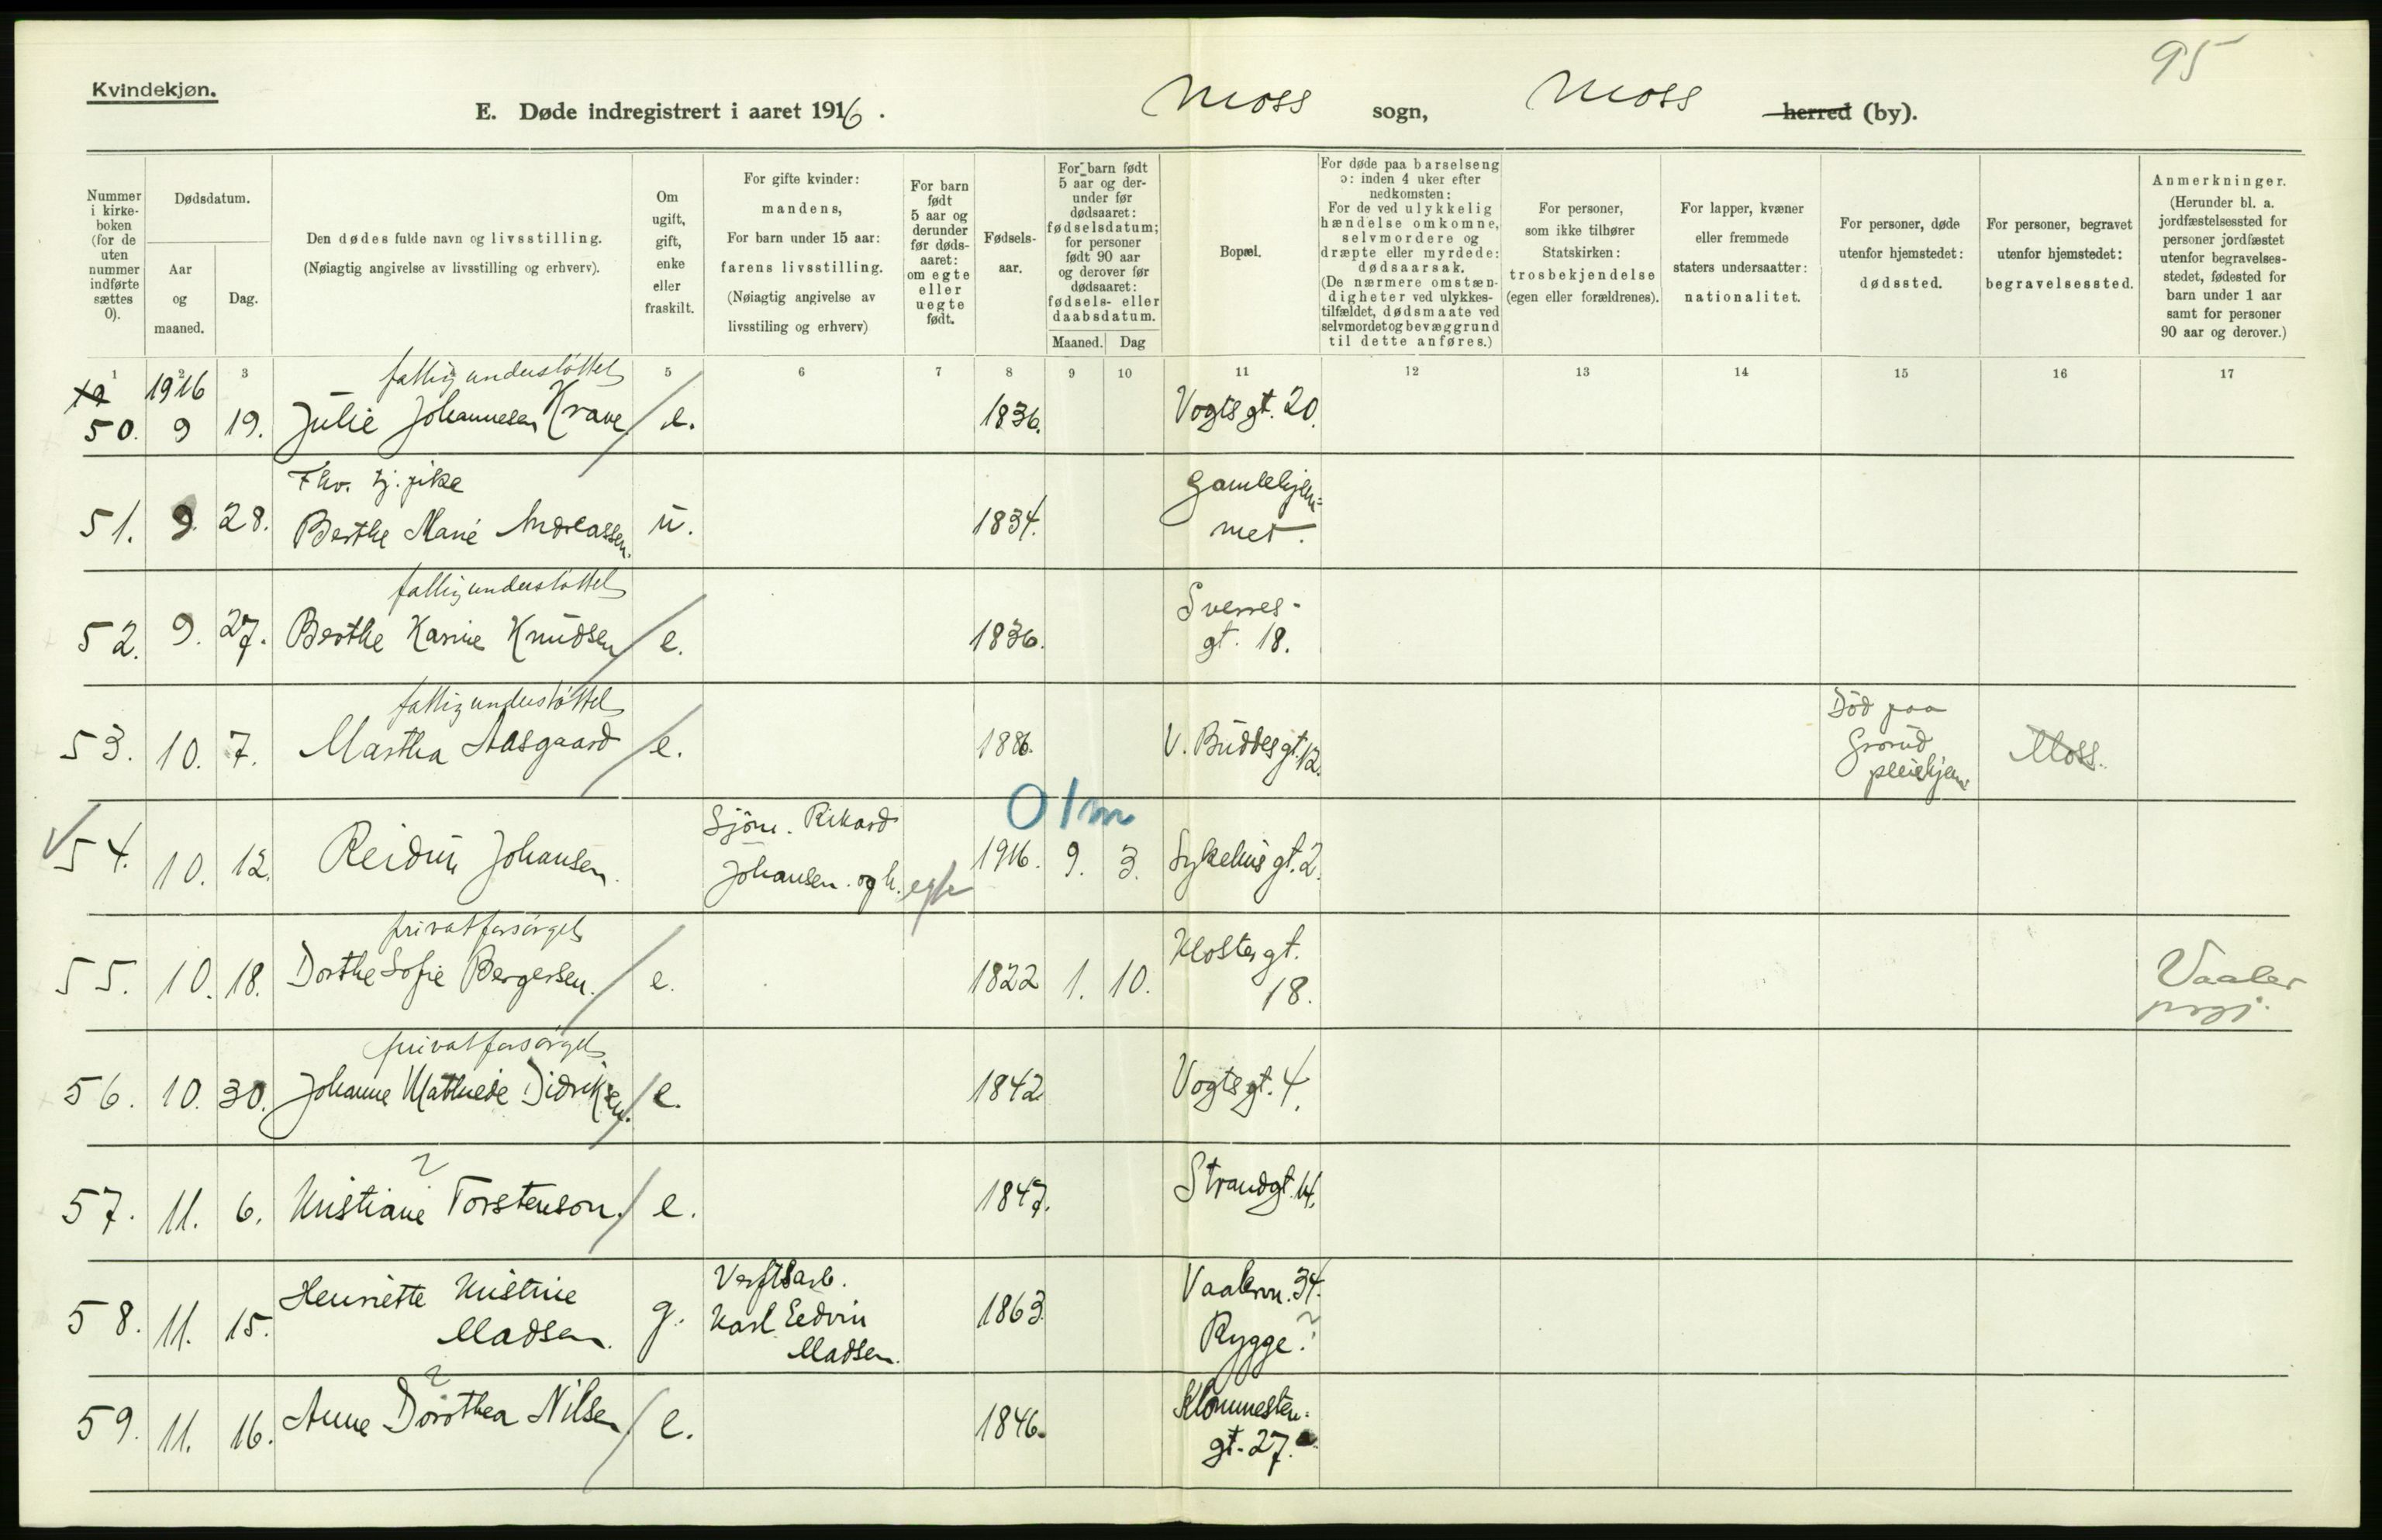 95
Kvindekjøn.
E. Døde indregistrert i aaret 1916. Moss sogn, Moss herred (by).
Nummer i kirke-boken (for de uten nummer indførte sættes 0).
Dødsdatum.
Aar og maaned.
Dag.
Den dødes fulde navn og livsstilling.
(Nøiagtig angivelse av livsstilling og erhverv).
Om ugift, gift, enke eller fraskilt.
For gifte kvinder: mandens,
For barn under 15 aar: farens livsstilling.
(Nøiagtig angivelse av livsstiling og erhverv)
For barn født 5 aar og derunder før døds-aaret: om egte eller uegte født.
Fødsels-aar.
For barn født 5 aar og der-under før dødsaaret: fødselsdatum; for personer født 90 aar og derover før dødsaaret: fødsels- eller daabsdatum.
Maaned. Dag
Bopæl.
For døde paa barselseng ɔ: inden 4 uker efter nedkomsten:
For de ved ulykkelig hændelse omkomne, selvmordere og dræpte eller myrdede: dødsaarsak.
(De nærmere omstæn-digheter ved ulykkes-tilfældet, dødsmaate ved selvmordet og bevæggrund til dette anføres.)
For personer, som ikke tilhører Statskirken: trosbekjendelse (egen eller forældrenes).
For lapper, kvæner eller fremmede staters undersaatter: nationalitet.
For personer, døde utenfor hjemstedet: dødssted.
For personer, begravet utenfor hjemstedet: begravelsessted.
Anmerkninger.
(Herunder bl. a. jordfæstelsessted for personer jordfæstet utenfor begravelses-stedet, fødested for barn under 1 aar samt for personer 90 aar og derover.)
1 2 3 5 6 7 8 9 10 11 12 13 14 15 16 17
1916 fattigunderstøttet
50. 9 19. Julie Johannesen Krave e. 1836. Vogtsgt. 20.
Fhv. tj. pike
51. 9. 28. Berthe Marie Andreassen. u. 1834. Gamlehjem=
met.
fattigunderstøttet
52. 9. 27. Berthe Karine Knudsen e. 1836. Sverres-
gt. 18.
fattigunderstøttet
53. 10. 7. Martha Aasgaard e. V. Buddesgt. 12. Död paa
Grorud
pleiehjem. Moss.
01m
54. 10. 12. Reidun Johansen. Sjöm. Rikard
Johansen. og h. egte 1916. 9. 3. Sykehusgt. 2.
privat forsørget
55. 10. 18. Dorthe Sofie Bergersen. e. 1822 1. 10. Klostergt.
18. Vaaler
prgj.
privat forsørget
56. 10. 30. Johanne Mathilde Didriksen. e. 1842 Vogtsgt. 4.
?
57. 11. 6. Kristiane Torstenson. e. 1847. Strandgt. 14.
58. 11. 15. Henriette Kristine
Madsen. g. Verftsarb.
Karl Edvin
Madsen. 1863. Vaalervn. 34.
Rygge?
?
59. 11. 16. Anne Dorothea Nilsen e. 1846. Klommesten-
gt. 27.